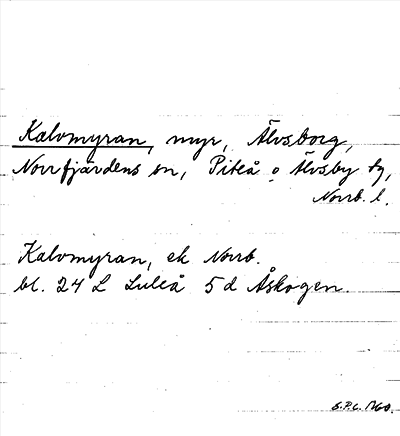 Kalvmyran, myr, Älvsborg,
Norrfjärdens sn, Piteå o Älvsby tg,
Norrb. l.
Kalvmyran, ek Norrb.
bl. 24 L Luleå 5d Åskogen.